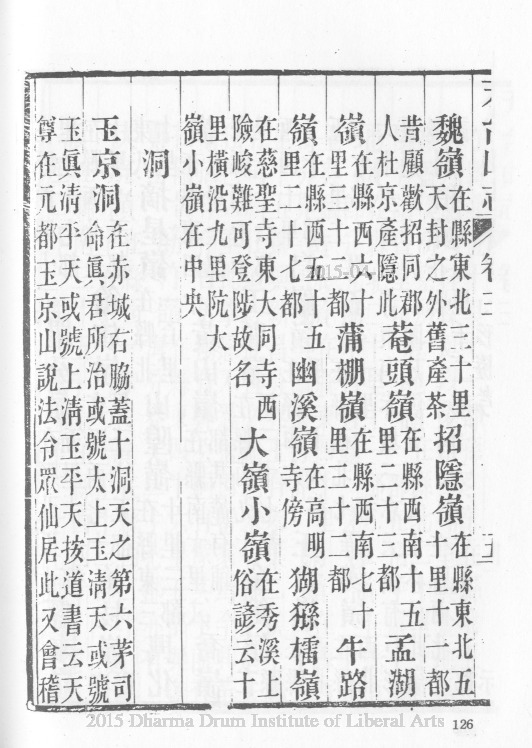 魏嶺在縣東北三十里天封之外舊產茶招隱嶺在縣東北五十里十一都
昔顧歡招同郡人杜京產隱此菴頭嶺在縣西南十五里二十三都孟湖
嶺在縣西六十里三十都蒲棚嶺在縣西南七十里三十二都牛路
嶺在縣西五十五里二十七都幽溪嶺在高明寺傍猢猻櫺嶺
在慈聖寺東大同寺西險峻難可登陟故名大嶺小嶺在秀溪上俗諺云十
里橫沿九里阬大嶺小嶺在中央
洞
玉京洞在赤城右脇蓋十洞天之第六茅司命眞君所治或號太上玉淸天或號
玉眞淸平天或號上淸玉平天按道書云天尊在元都玉京山說法令眾仙居此又會稽
2015 Dharma Drum Institute of Liberal Arts
126